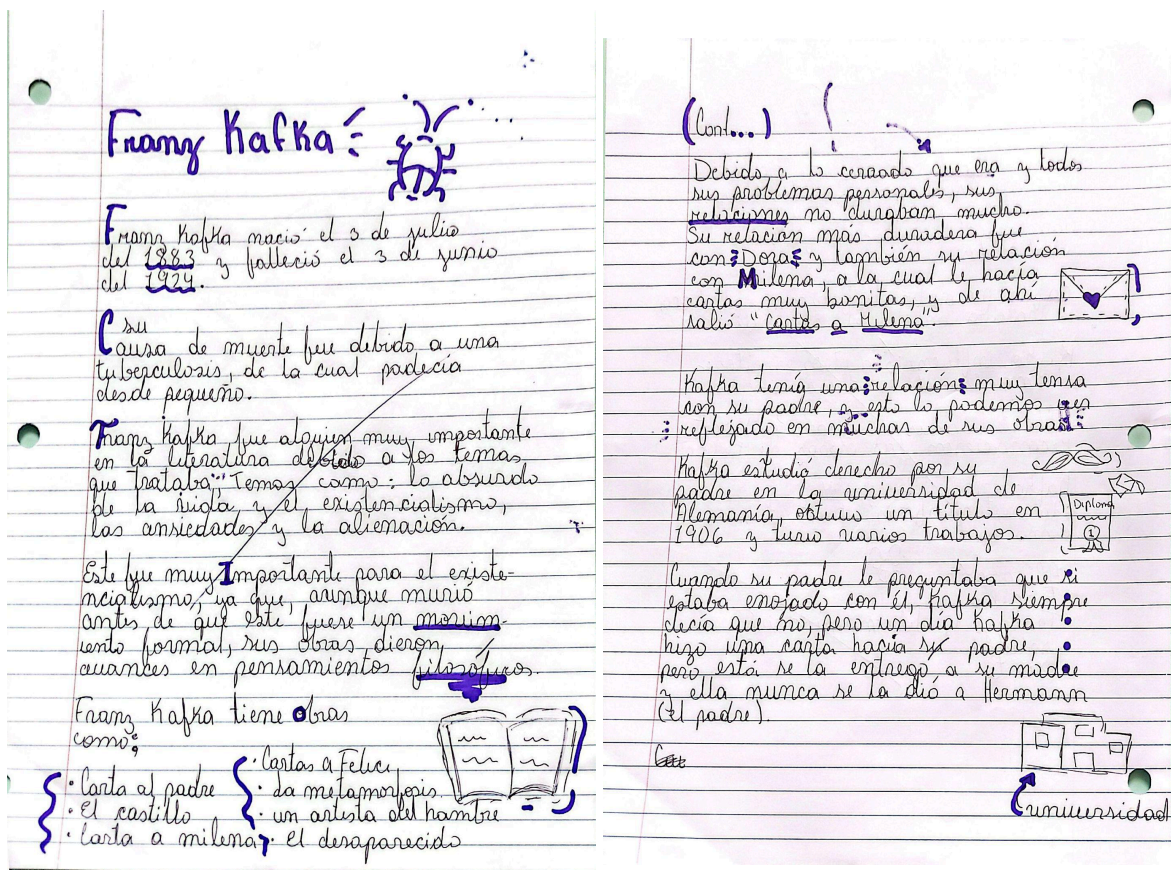 Franz Kafka
Franz Kafka nació el 3 de julio
del 1883 y falleció el 3 de junio
del 1924.
su
Causa de muerte fue debido a una
tuberculosis, de la cual padecía
desde pequeño.
Franz Kafka fue alguien muy importante
en la literatura debido a los temas
que trataba, Temas como: lo absurdo
de la vida, y el existencialismo,
las ansiedades y la alienación.
Este fue muy Importante para el existe-
ncialismo, ya que, aunque murió
antes de que este fuese un movim-
iento formal, sus obras dieron
avances en pensamientos filosóficos.
Franz Kafka tiene obras
como:
· Carta al padre
· El castillo
· Carta a milena
· Cartas a Felice
· La metamorfosis
· un artista del hambre
· El desaparecido
(Cont...)
Debido a lo cerrado que era y todos
sus problemas personales, sus
relaciones no duraban mucho.
Su relación más duradera fue
con Dora y también su relación
con Milena, a la cual le hacía
cartas muy bonitas, y de ahí
salió "Cartas a Milena".
Kafka tenía una relación muy tensa
con su padre, y esto lo podemos ver
reflejado en muchas de sus obras.
Kafka estudió derecho por su
padre en la universidad de
Alemania, obtuvo un título en
1906 y tuvo varios trabajos.
Diploma
1
Cuando su padre le preguntaba que si
estaba enojado con él, Kafka siempre
decía que no, pero un día Kafka
hizo una carta hacia su padre,
pero está se la entregó a su madre
y ella nunca se la dió a Hermann
(El padre).
universidad